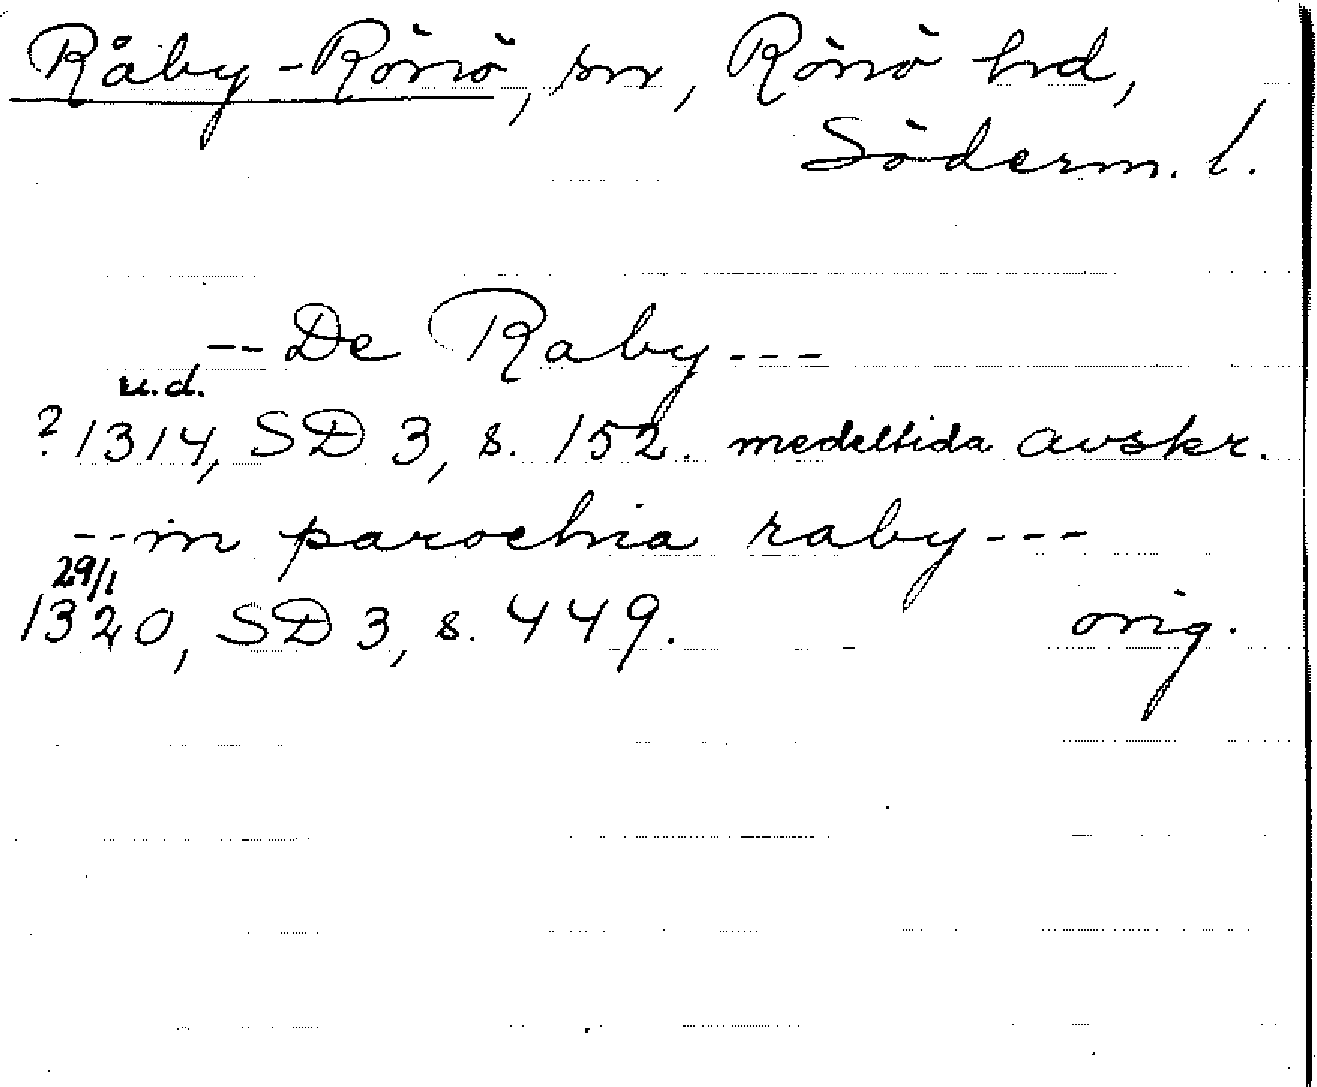 Råby-Rönö, sn, Rönö hd,
Söderm. l.
-- De Raby ---
u.d.
? 1314, SD 3, s. 152. medeltida avskr.
-- in parochia raby ---
29/1
1320, SD 3, s. 449. orig.